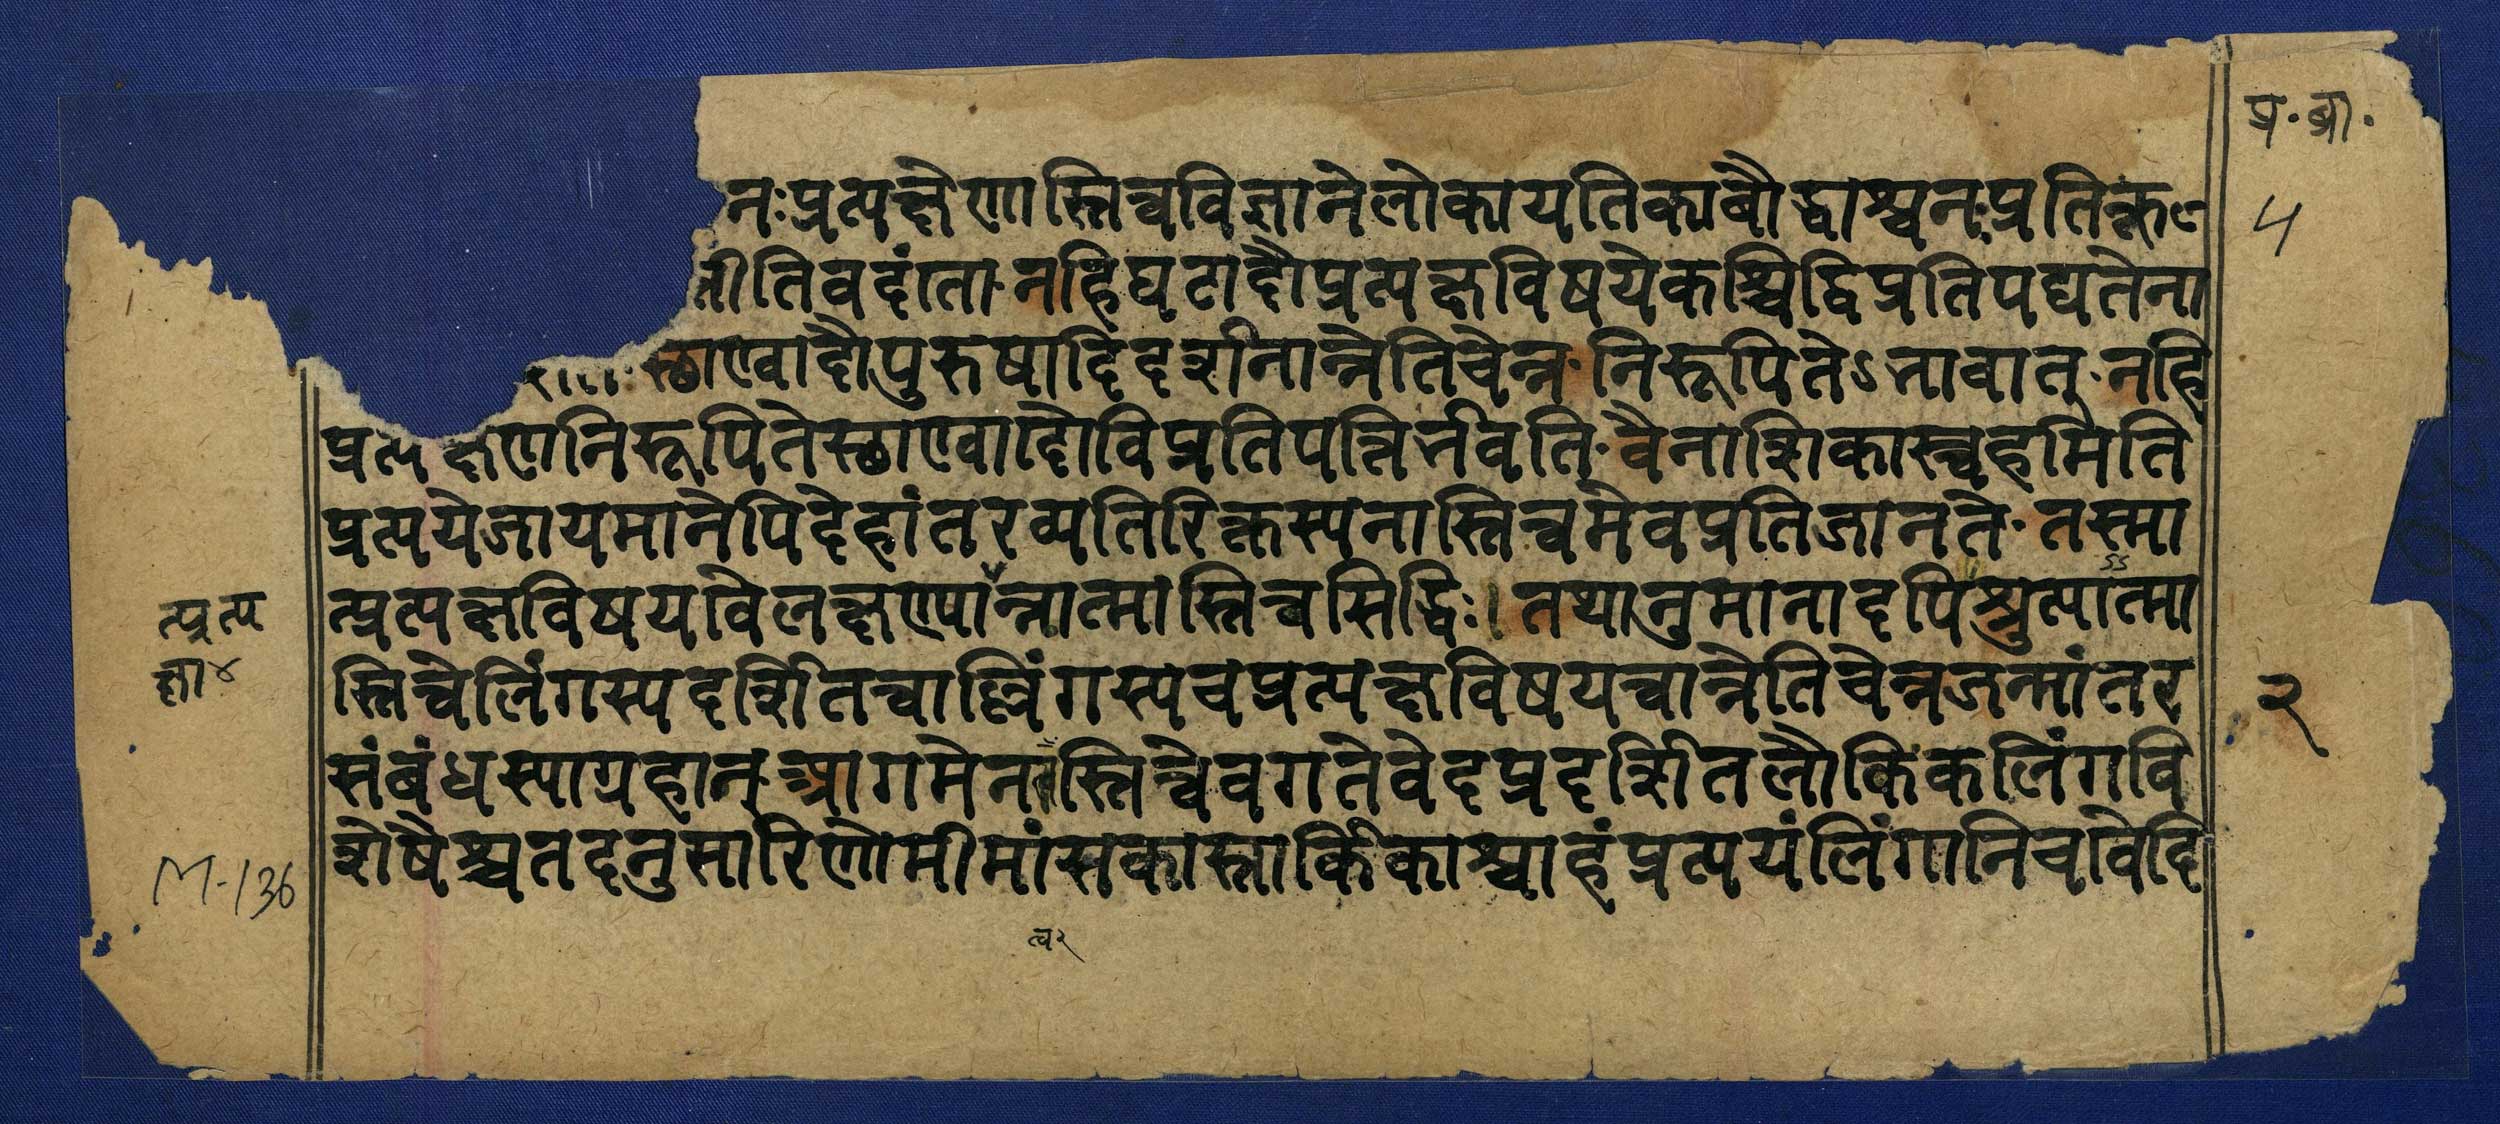 प्र॰ब्री॰
५
नः प्रत्यक्षेणास्तित्वविज्ञाने लोकायतिका बौद्धाश्च नः प्रतिकूल
तीति वदंता नहि घटादौ प्रत्यक्षविषये कश्चिद्विप्रतिपद्यते ना
स्थाण्वादौ पुरुषादिदर्शनान्नेति चेन्न निरूपितेऽभावात् नहि
प्रत्यक्षेण निरूपिते स्थाण्वादौ विप्रतिपत्तिर्भवति वैनाशिकास्त्वहमिति
प्रत्यये जायमानेपि देहांतरव्यतिरिक्तस्य नास्तित्वमेव प्रतिजानते तस्मा
त्प्रत्यक्षविषयवैलक्षण्यान्नात्मास्तित्वसिद्धिः। तथानुमानादपि श्रुत्यात्मा
त्प्रत्य
क्षा४
स्तित्वे लिंगस्य दर्शितत्वाल्लिंगस्य च प्रत्यक्षविषयत्वान्नेति चेन्न जन्मांतर
२
संबंधस्याग्रहात् आगमेन स्तित्वेवगते वेदप्रदर्शितलौकिकलिंगवि
शेषैश्च तदनुसारिणो मीमांसकास्तार्किकाश्चाहंप्रत्ययंलिंगानि च वैदि
M-136
त्व२